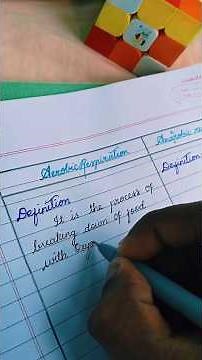 Aerobic Respiration
Definition
It is the process of
breaking down of food
with
Definition